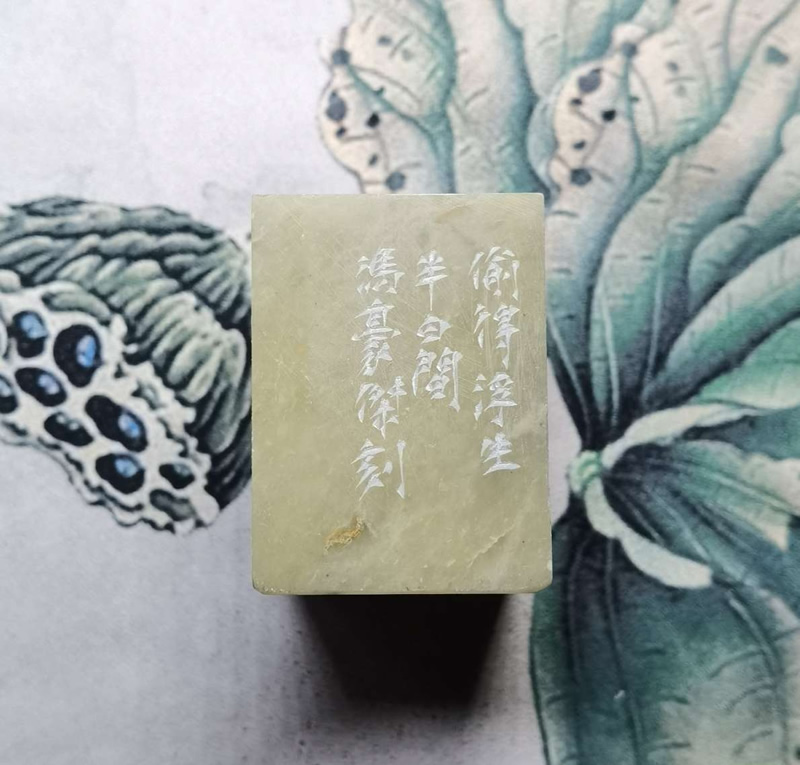 偷得浮生
半日閒
馮豪傑刻